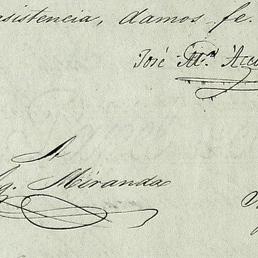 sistencia, damos fe.
José M.ª
Miranda